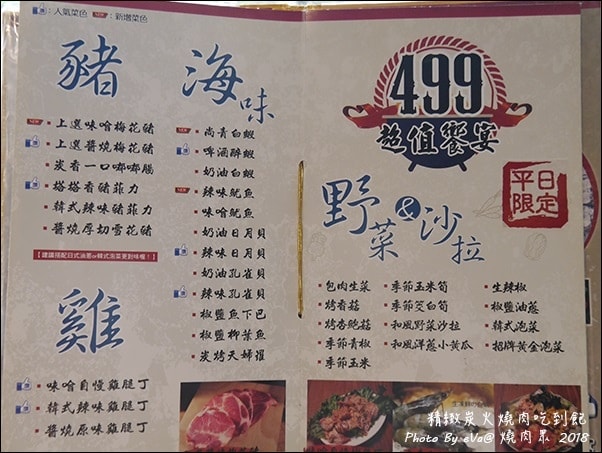 ：人氣菜色 NEW：新增菜色
豬
上選味噌梅花豬
上選醬燒梅花豬
炭香一口嘟嘟腸
搭搭香豬菲力
韓式辣味豬菲力
醬燒厚切雪花豬
【建議搭配日式油蔥or韓式泡菜更對味喔！】
雞
味噌自慢雞腿丁
韓式辣味雞腿丁
醬燒原味雞腿丁
海味
尚青白蝦
啤酒醉蝦
奶油白蝦
辣味魷魚
味噌魷魚
奶油日月貝
辣味日月貝
奶油孔雀貝
辣味孔雀貝
椒鹽魚下巴
椒鹽柳葉魚
炭烤天婦羅
499
超值饗宴
平日
限定
野菜&沙拉
包肉生菜
烤香菇
烤杏鮑菇
季節青椒
季節玉米
季節玉米筍
季節茭白筍
和風野菜沙拉
和風洋蔥小黃瓜
生辣椒
椒鹽油蔥
韓式泡菜
招牌黃金泡菜
精緻炭火燒肉吃到飽
Photo By eVa@ 燒肉眾 2018